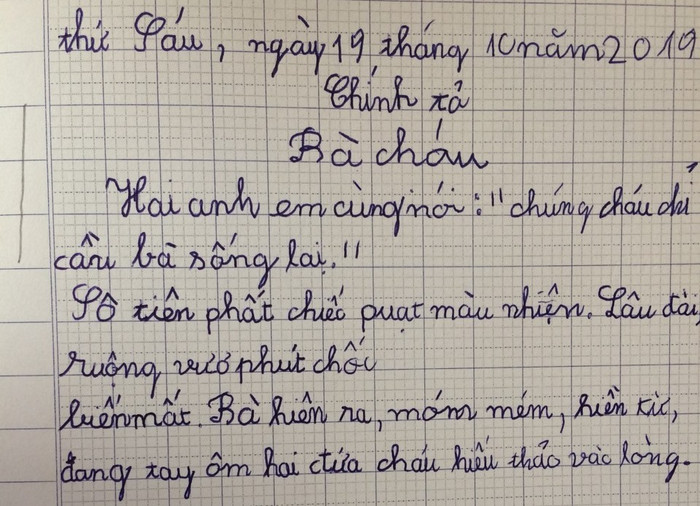 thứ Sáu, ngày 19 tháng 10 năm 2019
Chính tả
Bà cháu
Hai anh em cùng nói : "chúng cháu chỉ
cần bà sống lại."
Sô tiên phất chiếc puạt màu nhiện. Lâu đài,
ruộng vườ phút chốc
biến mất. Bà hiên ra, móm mém, hiền từ,
đang tay ôm hai đứa cháu hiếu thảo vào lòng.